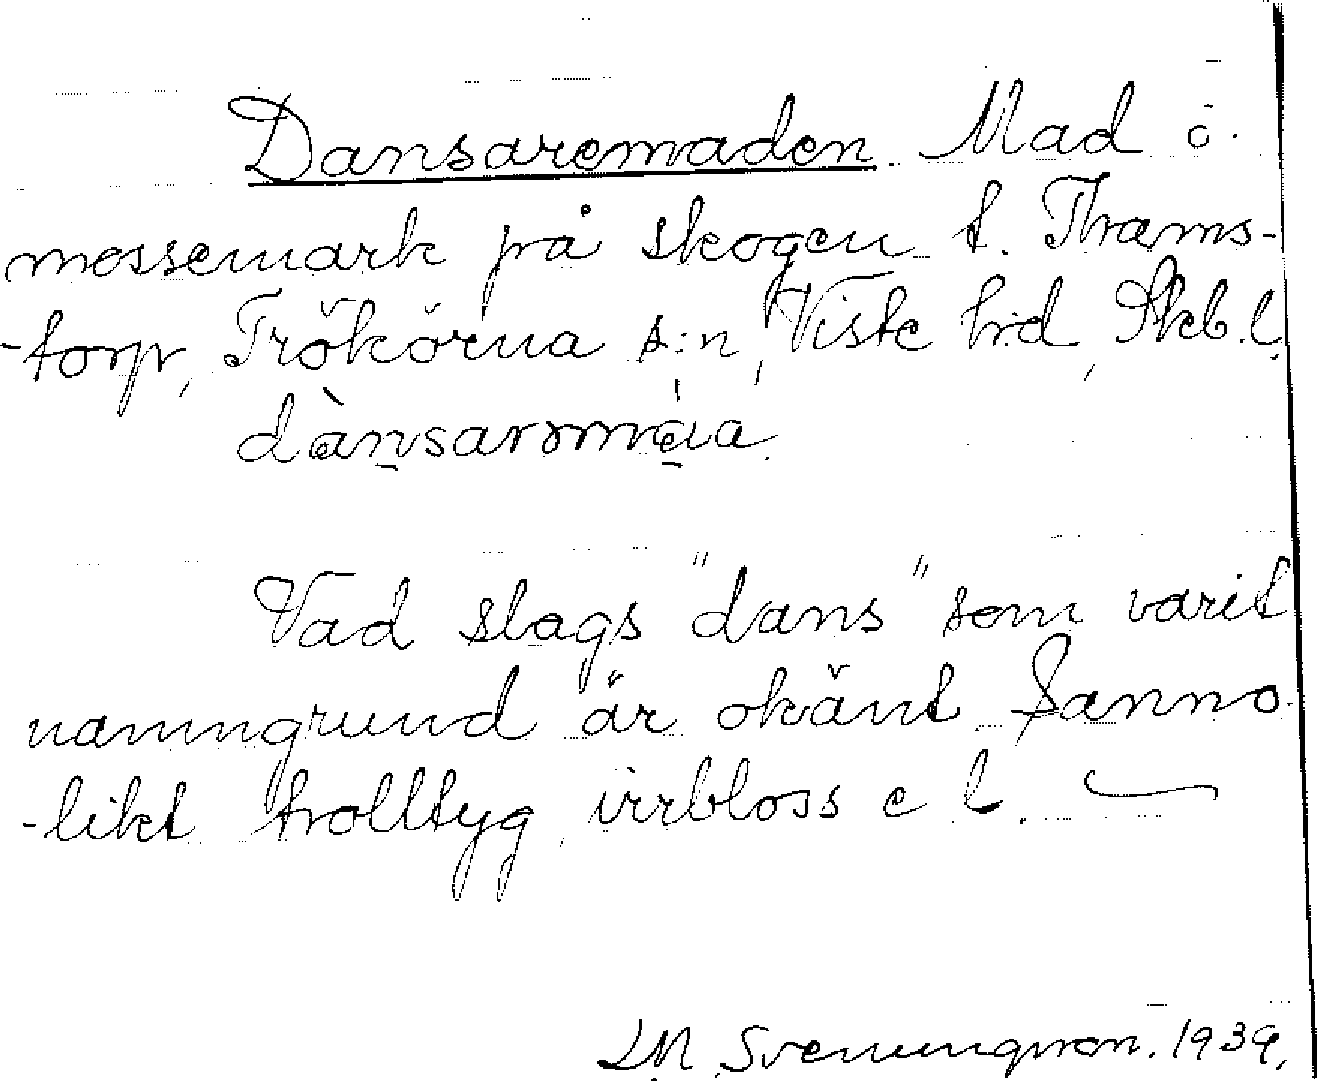 Dansaremaden. Mad o.
mossemark på skogen t. Thams-
-torp, Trökörna s:n, Viste h:d, Skb.l.
Vad slags "dans" som varit
namngrund är okänt. Sanno
-likt trolltyg, irrbloss e l.
LM. Svenungsson. 1939.